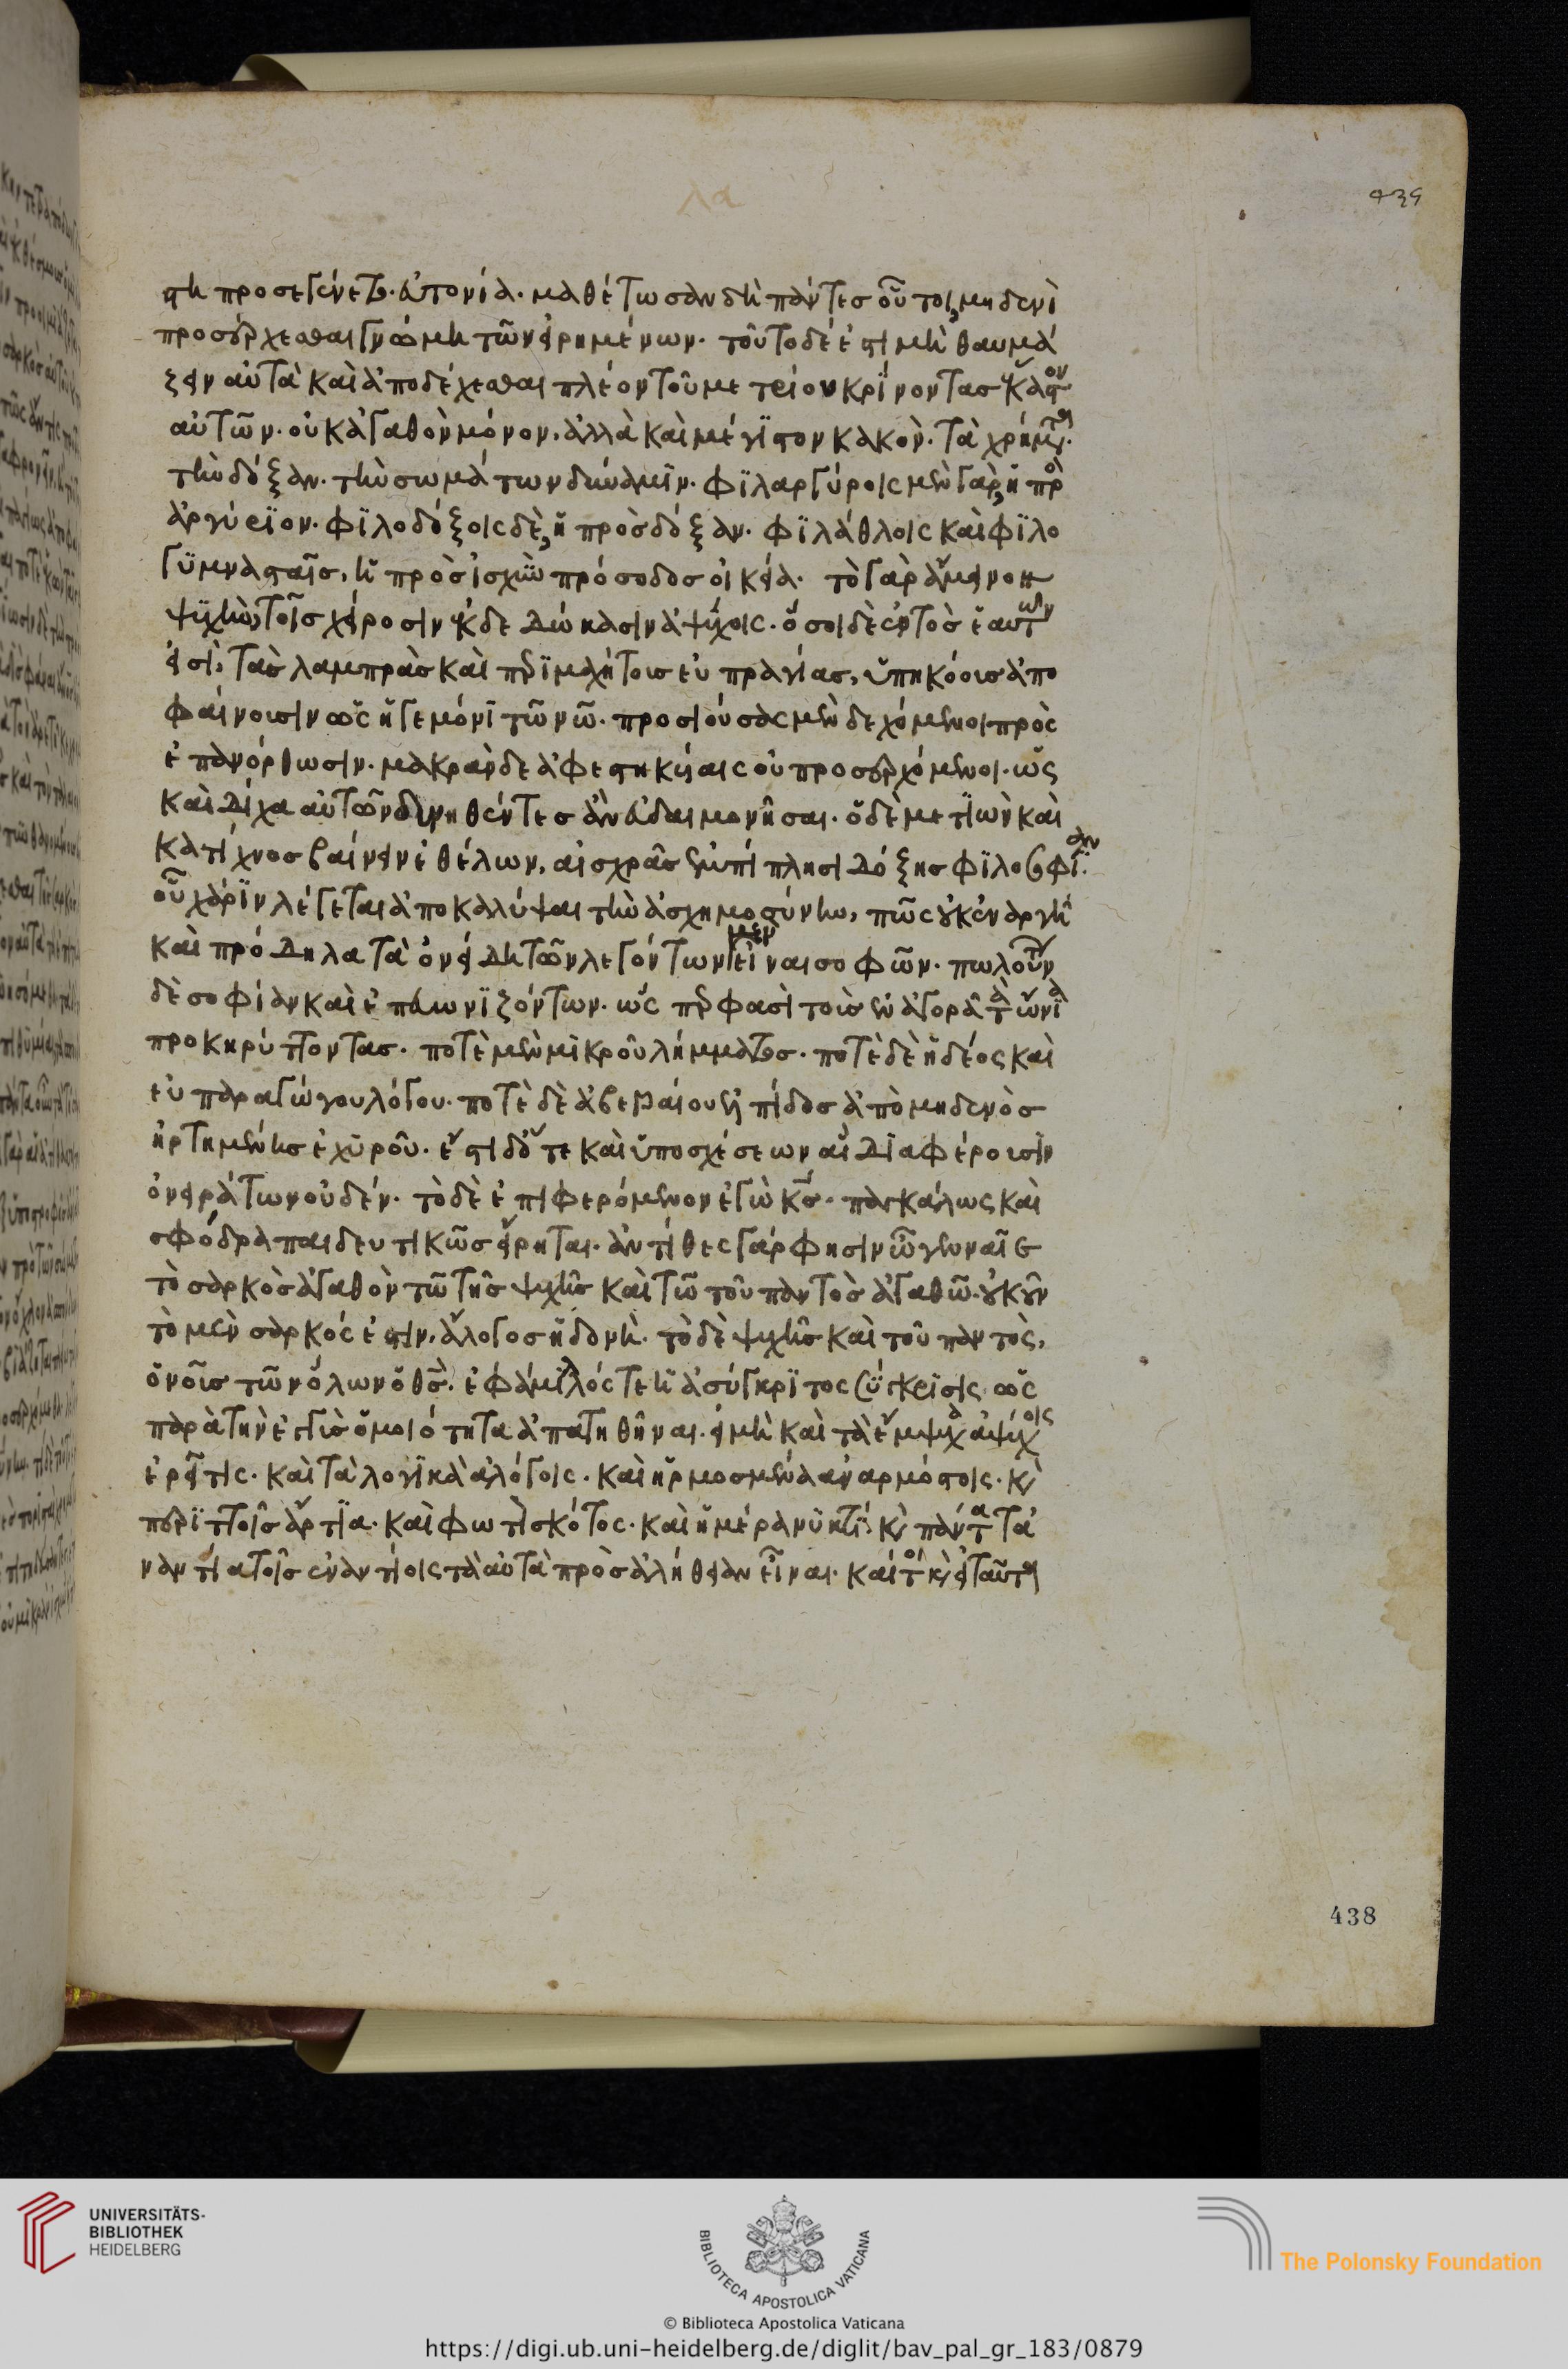 λα
439
στη προσεγένετο εὐτονία. μαθέτωσαν δὴ πάντες οὗτοι, μηδενὶ
προσέρχεσθαι γνώμη τῶν εἰρημένων. τοῦτο δέ ἐστι μὴ θαυμά
ζειν αὐτὰ καὶ ἀποδέχεσθαι πλέον τοῦ μετρίου κρίνοντας ἕκαστον
αὐτῶν. οὐκ ἀγαθὸν μόνον, ἀλλὰ καὶ μέγιστον κακὸν. τὰ χρήματα.
τὴν δόξαν. τὴν σωμάτων δύναμϊν. φϊλαργύροις μὲν γὰρ, ἡ πρὸς
ἀργύριον. φϊλοδόξοις δὲ, ἡ πρὸς δόξαν. φϊλάθλοις καὶ φϊλο
γϋμνασταῖς, ἡ πρὸς ἰσχὺν πρόσοδος οἰκεία. τὸ γὰρ ἄμεινον
ψϋχὴν, τοῖς χείροσιν ἐκδεδώκασιν ἀψύχοις. ὅσοι δὲ ἐντὸς ἑαυτῶν
εἰσὶ, τὰς λαμπρὰς καὶ περϊμαχήτους εὐπραγίας, ὑπηκόους ἀπο
φαίνουσιν ὡς ἡγεμόνϊ τῶ νῶ. προσιούσας μὲν δεχόμενοι πρὸς
ἐπανόρθωσιν. μακρὰν δὲ ἀφεστηκυίαις οὐ προσερχόμενοι. ὡς
καὶ δίχα αὐτῶν δυνηθέντες ἂν εὐδαιμονῆσαι. ὁ δὲ μετϊὼν καὶ
κατίχνος βαίνειν ἐθέλων, αἰσχρᾶς ἐμπίπλησι δόξης φϊλοσοφϊαν.
οὗ χάρϊν λέγεται ἀποκαλύψαι τὴν ἀσχημοσύνην, πῶς οὐκ ἐναργῆ
καὶ πρόδηλα τὰ ὀνείδη τῶν λεγόντων μὲν εἶναι σοφῶν. πωλούντων
δὲ σοφίαν καὶ ἐπευωνϊζόντων. ὡς περ φασὶ τοὺς ἐν ἀγορᾶ τὰ ὤνϊα
προκηρύττοντας. ποτὲ μὲν μϊκροῦ λήμματος. ποτὲ δὲ ἡδέος καὶ
εὐπαραγώγου λόγου. ποτὲ δὲ ἀβεβαίου ἐλπίδος ἀπὸ μηδενὸς
ἠρτημένης ἐχϋροῦ. ἔστι δ' ὅτε καὶ ὑποσχέσεων αἳ διαφέρουσιν
ὀνειράτων οὐδέν. τὸ δὲ ἐπιφερόμενον ἐγὼ κύριος. παγκάλως καὶ
σφόδρα παιδευτικῶς εἴρηται. ἀντίθες γάρ φησιν ὦ γενναῖε
τὸ σαρκὸς ἀγαθὸν τῶ τῆς ψυχῆς καὶ τῶ τοῦ παντὸς ἀγαθῶ. οὐκοῦν
τὸ μὲν σαρκός ἐστιν, ἄλογος ἡδονὴ. τὸ δὲ ψυχῆς καὶ τοῦ παντὸς,
ὁ νοῦς τῶν ὅλων ὁ θεὸς. ἐφάμϊλλός τε ἡ ἀσύγκρϊτος σύγκρϊσις. ὡς
παρὰ τὴν ἐγγὺς ὁμοιότητα ἀπατηθῆναι. εἰ μὴ καὶ τὰ ἔμψυχα ἀψύχοις
ἐρεῖ τις. καὶ τὰ λογϊκὰ ἀλόγοις. καὶ ἡρμοσμένα ἀναρμόστοις. καὶ
περϊττοῖς ἄρτϊα. καὶ φωτὶ σκότος. καὶ ἡμέρα νύκτϊ. καὶ πάντα τὰ
ναντία τοῖς ἐναντίοις τὰ αὐτὰ πρὸς ἀλήθειαν εἶναι. καίτοι καὶ εἰ ταῦτα
438
UNIVERSITÄTS-
BIBLIOTHEK
HEIDELBERG
BIBLIOTECA APOSTOLICA VATICANA
The Polonsky Foundation
© Biblioteca Apostolica Vaticana
https://digi.ub.uni-heidelberg.de/diglit/bav_pal_gr_183/0879